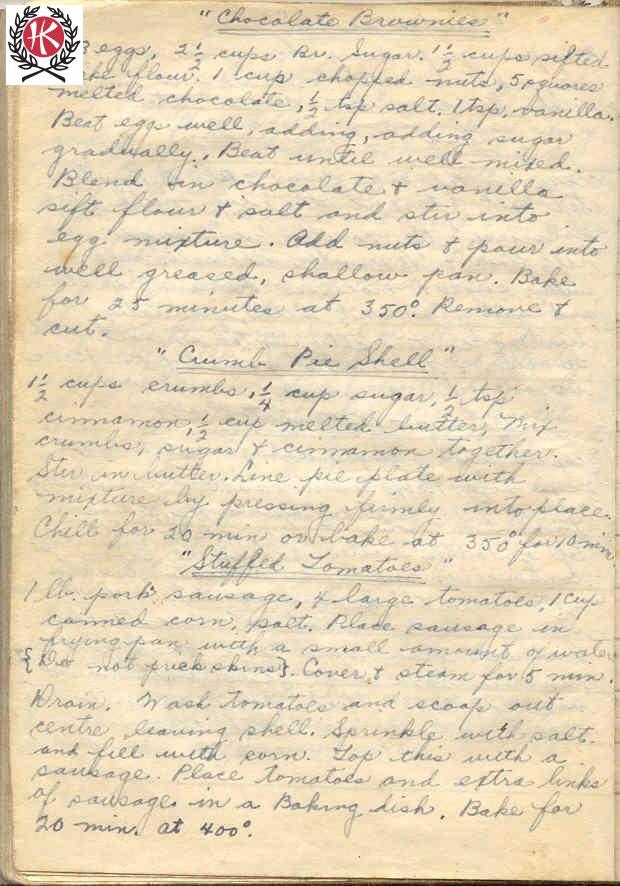 "Chocolate Brownies"
3 eggs, 2 1/2 cups Br. Sugar. 1 1/2 cups sifted
cake flour. 1 cup chopped nuts, 5 squares
melted chocolate, 1/2 tsp salt. 1 tsp. vanilla.
Beat eggs well, adding, adding sugar
gradually. Beat until well mixed.
Blend in chocolate & vanilla
sift flour & salt and stir into
egg mixture. Add nuts & pour into
well greased, shallow pan. Bake
for 25 minutes at 350°. Remove &
cut.
"Crumb Pie Shell"
1 1/2 cups crumbs, 1/4 cup sugar, 1/2 tsp
cinnamon, 1/2 cup melted butter, Mix
crumbs, sugar & cinnamon together.
Stir in butter. Line pie plate with
mixture by pressing firmly into place.
Chill for 20 min or bake at 350° for 10 min
"Stuffed Tomatoes"
1 lb. pork sausage, 4 large tomatoes, 1 cup
canned corn, salt. Place sausage in
frying pan with a small amount of water
{Do not prick skins}. Cover & steam for 5 min.
Drain. Wash tomatoes and scoop out
centre leaving shell. Sprinkle with salt.
and fill with corn. Top this with a
sausage. Place tomatoes and extra links
of sausage in a Baking dish. Bake for
20 min. at 400°.